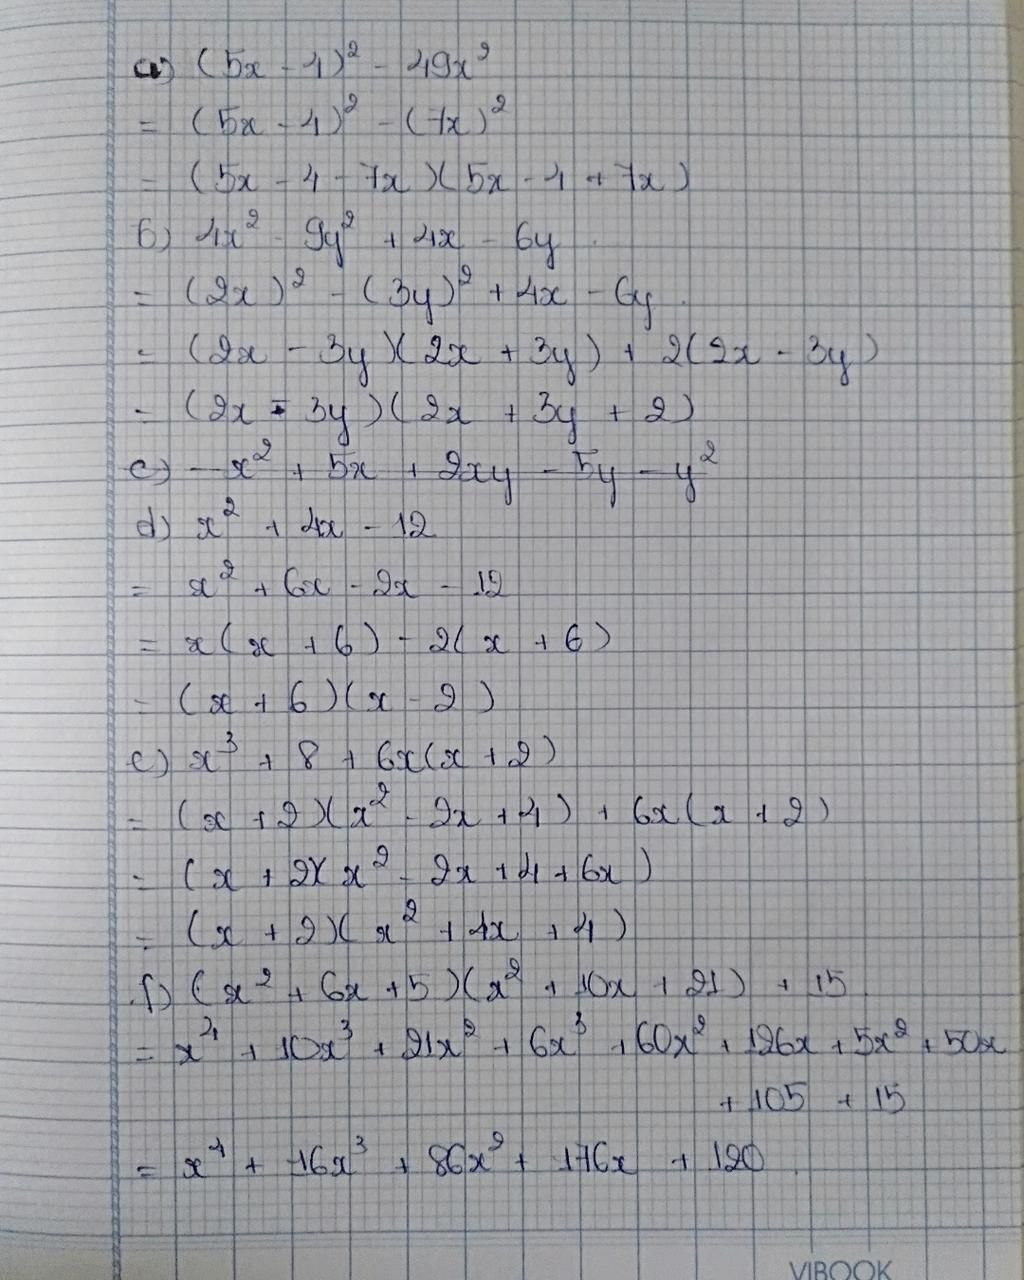 a) (5x - 4)² - 49x²
= (5x - 4)² - (7x)²
= (5x - 4 - 7x)(5x - 4 + 7x)
b) 4x² - 9y² + 4x - 6y
= (2x)² - (3y)² + 4x - 6y
= (2x - 3y)(2x + 3y) + 2(2x - 3y)
= (2x - 3y)(2x + 3y + 2)
c) -x² + 5x + 2xy - 5y - y²
d) x² + 4x - 12
= x² + 6x - 2x - 12
= x(x + 6) - 2(x + 6)
= (x + 6)(x - 2)
e) x³ + 8 + 6x(x + 2)
= (x + 2)(x² - 2x + 4) + 6x(x + 2)
= (x + 2)(x² - 2x + 4 + 6x)
= (x + 2)(x² + 4x + 4)
f) (x² + 6x + 5)(x² + 10x + 21) + 15
= x⁴ + 10x³ + 21x² + 6x³ + 60x² + 126x + 5x² + 50x
+ 105 + 15
= x⁴ + 16x³ + 86x² + 176x + 120
VIBOOK